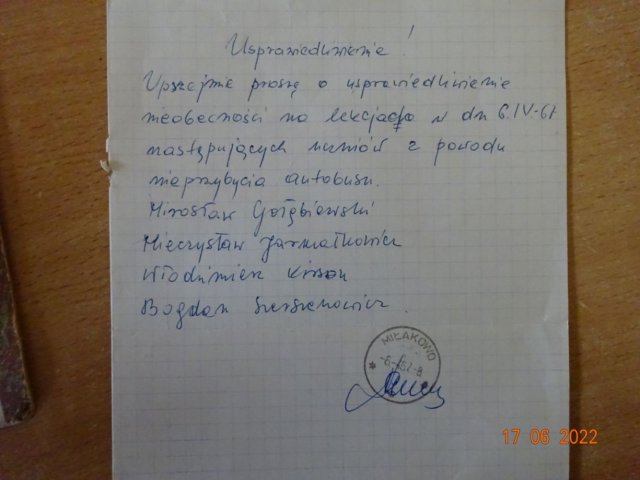 Usprawiedliwienie!
Upszejmie proszę o usprawiedliwienie
nieobecności na lekcjach w dn 6.IV-67
następujących uczniów z powodu
nieprzybycia autobusu.
Mirosław Gołębiewski
Mieczysław Jarmałkowicz
Włodzimierz
Bogdan
MIŁAKOWO
17 06 2022